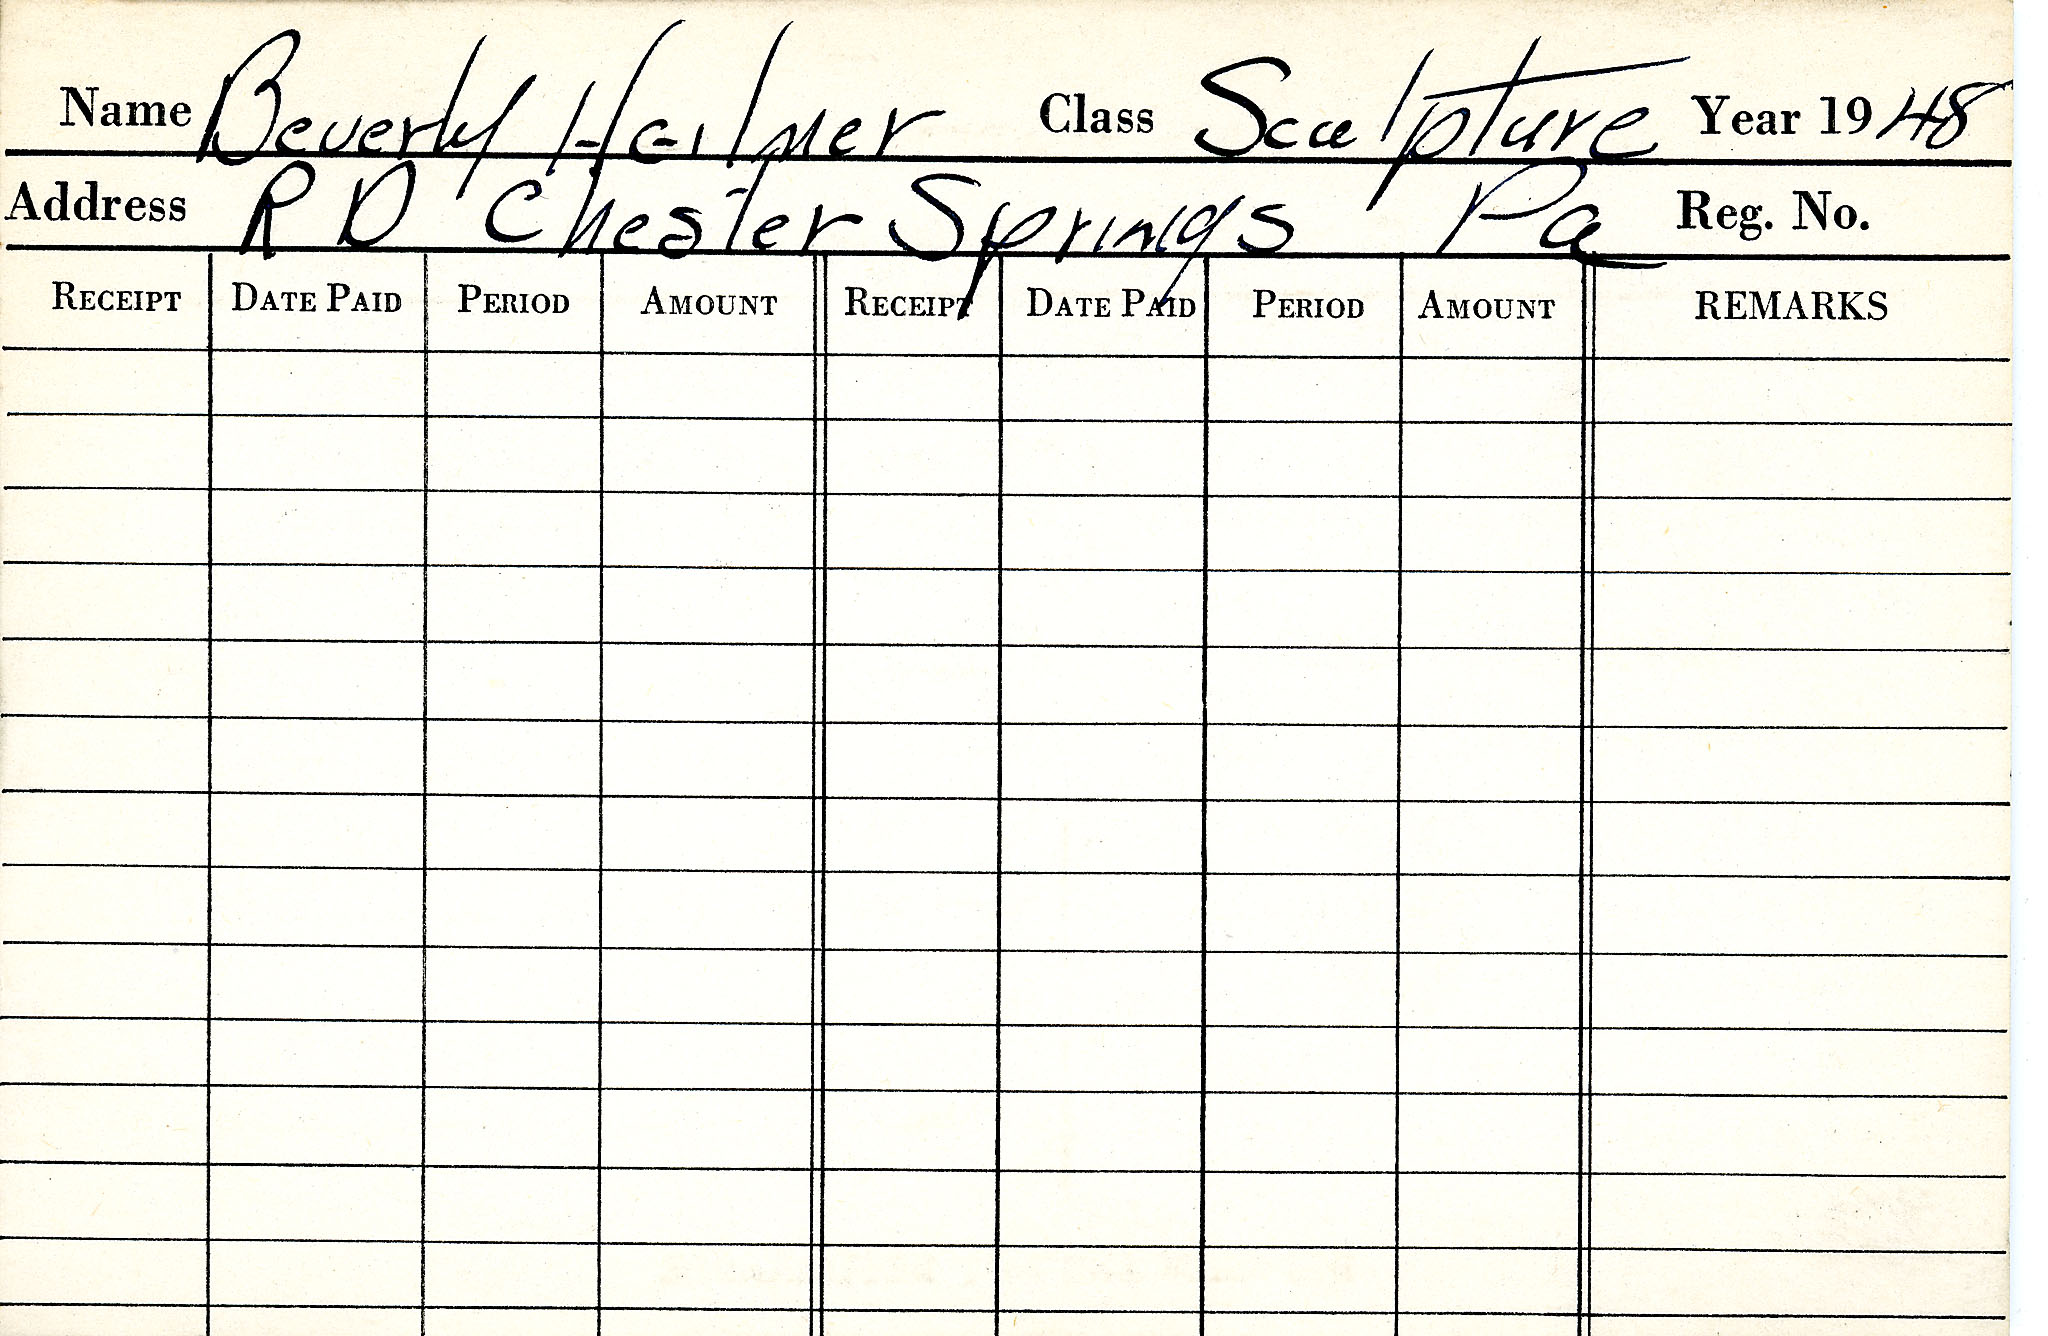 Name Beverly Hailner Class Sculpture Year 1948
Address R D Chester Springs Pa Reg. No.
RECEIPT DATE PAID PERIOD AMOUNT RECEIPT DATE PAID PERIOD AMOUNT REMARKS